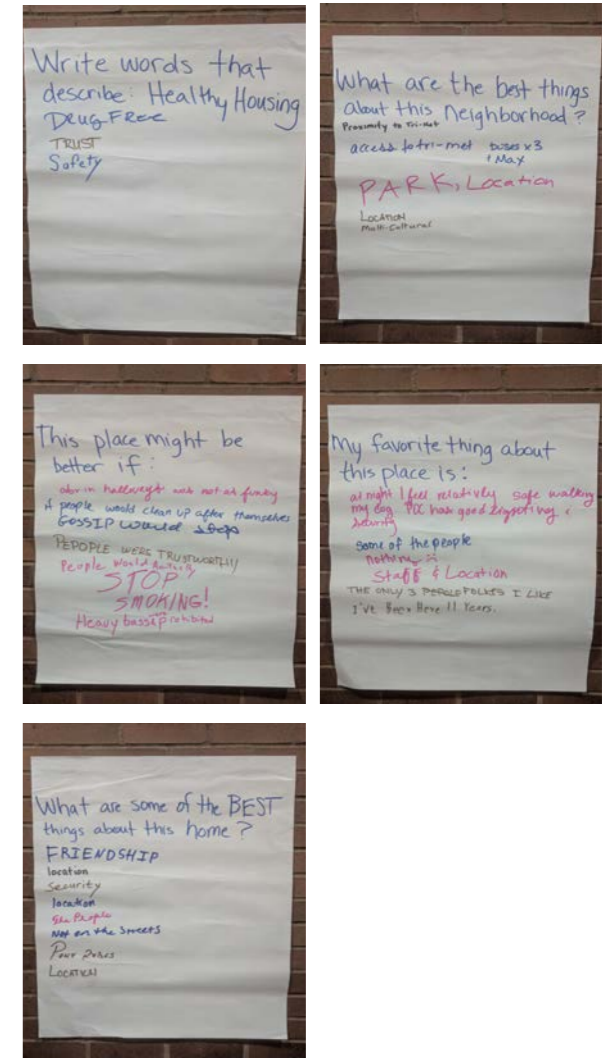 Write words that
describe: Healthy Housing
Drug Free
TRUST
Safety
What are the best things
about this Neighborhood?
Proximity to Tri-Met
access to tri-met buses x3
1 Max
PARK, Location
LOCATION
Multi-Cultural
This place might be
better if:
odor in hallways was not as funky
if people would clean up after themselves
GOSSIP would stop
PEPOPLE WERE TRUSTWORTHY
People would Actually
STOP
SMOKING!
Heavy bass prohibited
My favorite thing about
this place is:
at night I feel relatively safe walking
my dog. PCC has good lighting &
Security
some of the people
nothing
Staff & Location
THE ONLY 3 FOLKES I LIKE
I've Been Here 11 Years.
What are some of the BEST
things about this home?
FRIENDSHIP
location
Security
location
the People
Not on the Streets
LOCATION